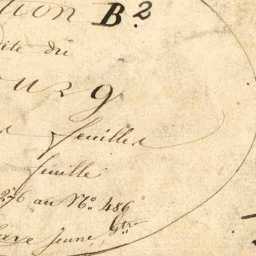 tion B.2
ite du
ourg
feuilles
feuille
276 au N.º 486
Jeune,